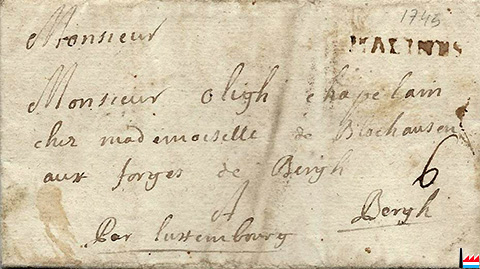 1745
MALINES
Monsieur
Monsieur Oligh chapelain
chez mademoiselle de Blochausen
aux forges de Bergh
A
6
Bergh
Par Luxembourg